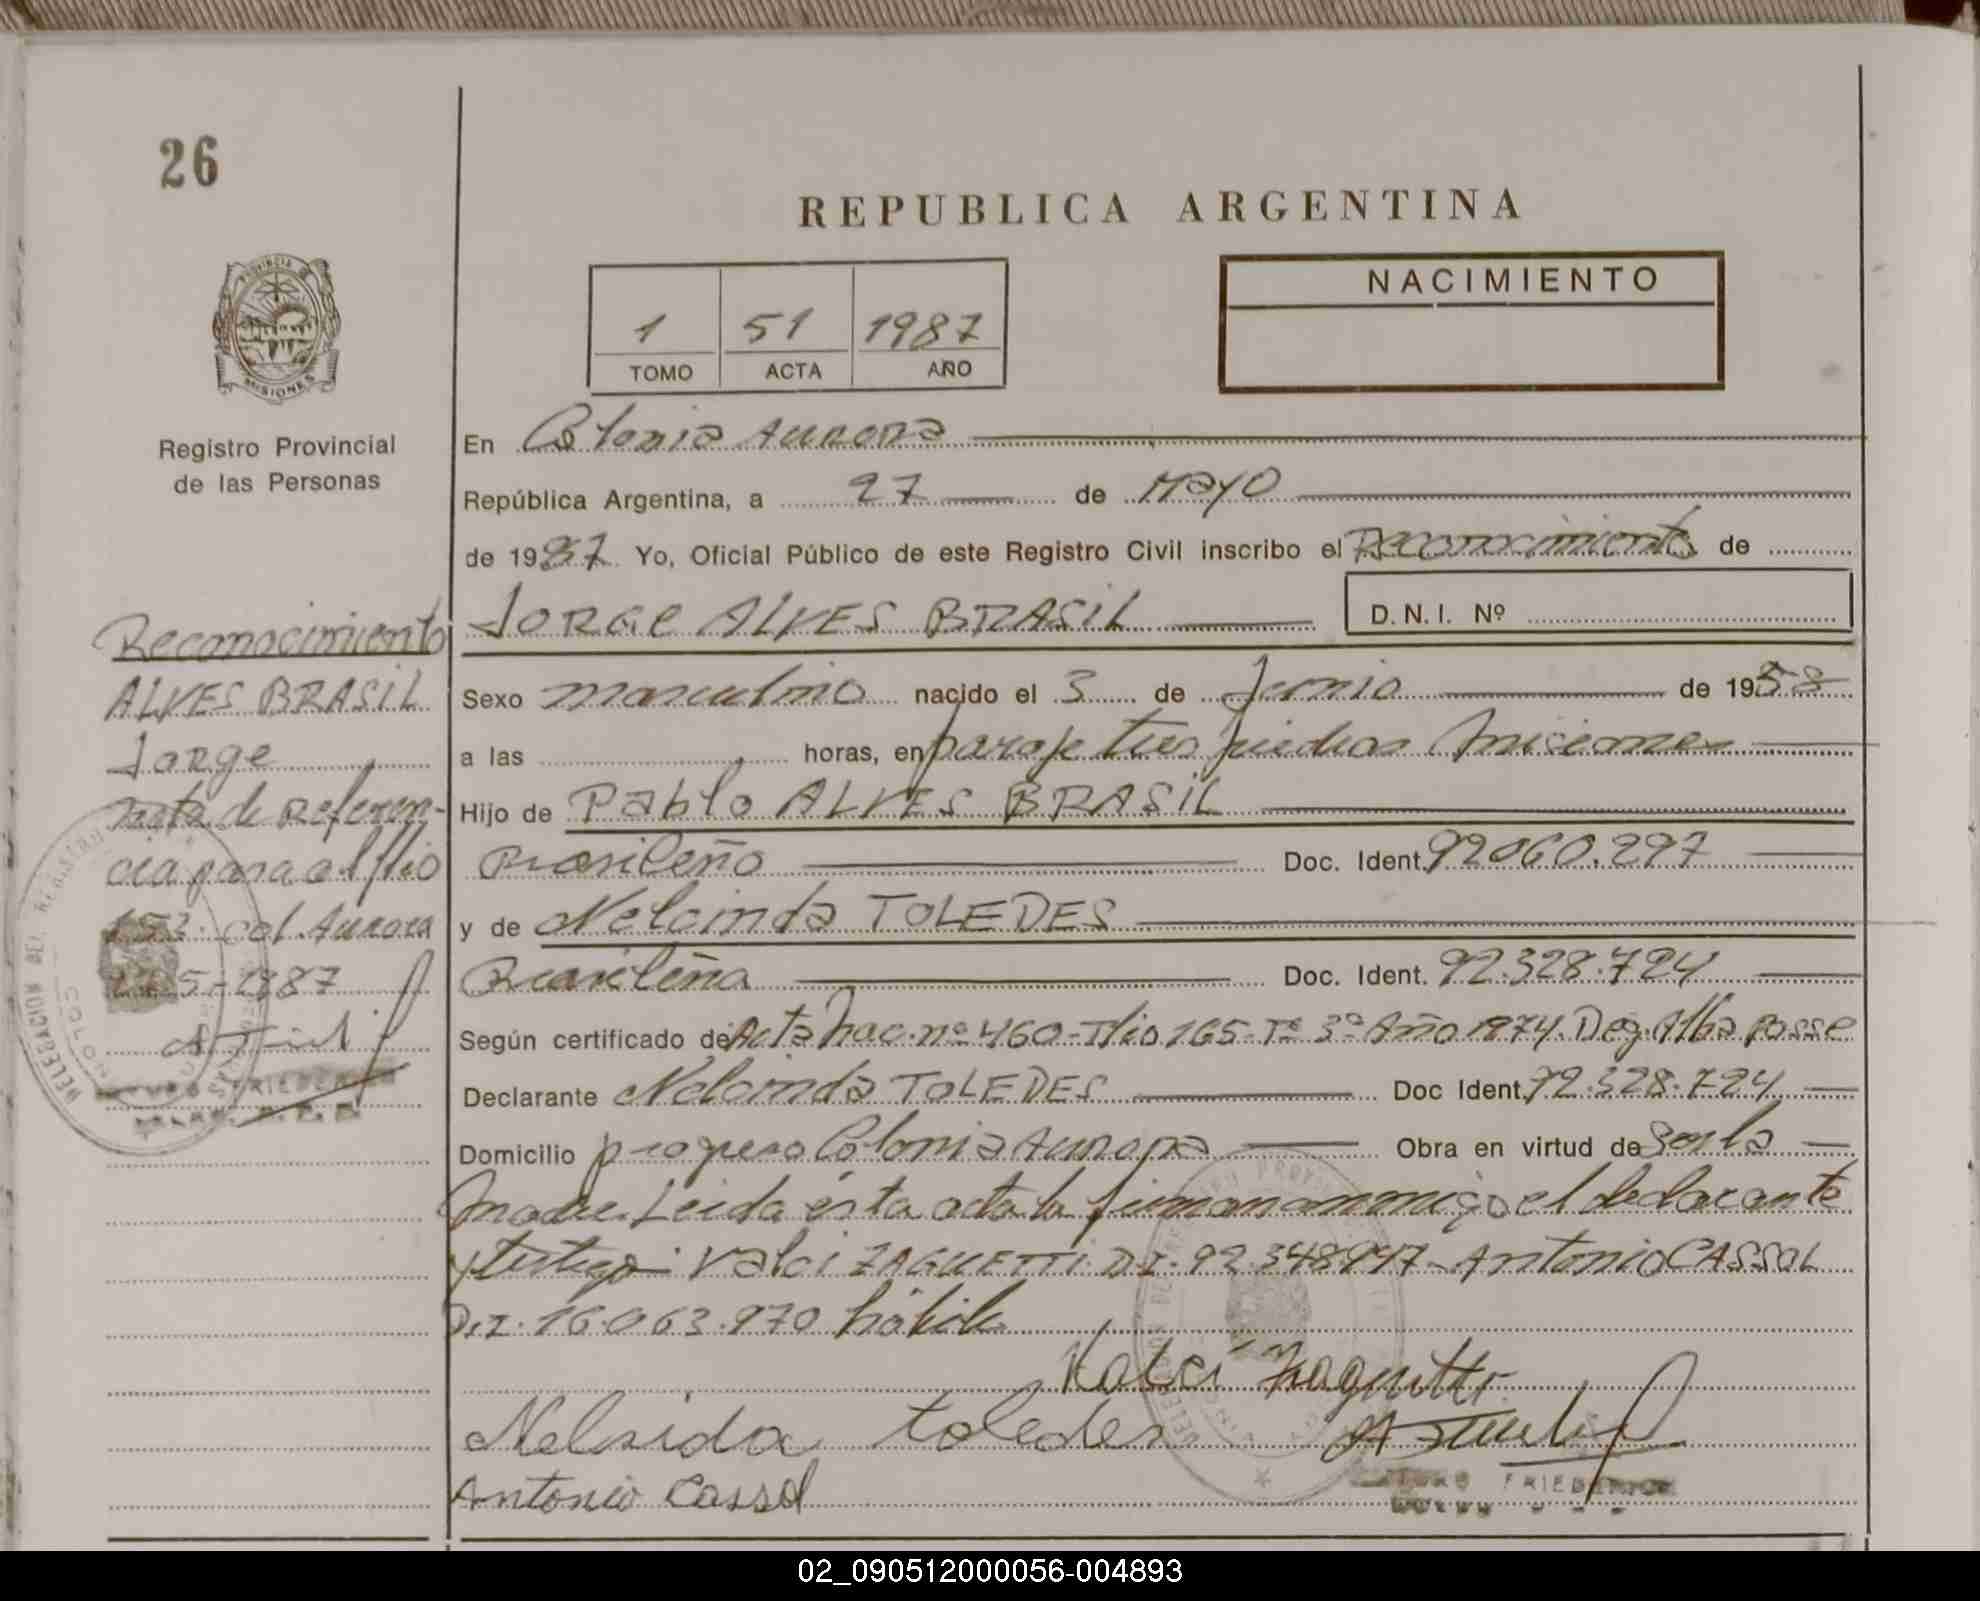 26
REPUBLICA ARGENTINA
NACIMIENTO
1 51 1987
TOMO ACTA AÑO
PROVINCIA DE
MISIONES
Registro Provincial
de las Personas
En Colonia Aurora
República Argentina, a 27 de Mayo
de 1987. Yo, Oficial Público de este Registro Civil inscribo el Reconocimiento de
JORGE ALVES BRASIL D.N.I. Nº
Sexo masculino nacido el 3 de Junio de 1958
a las horas, en paraje tres piedras Misiones
Hijo de Pablo ALVES BRASIL
Brasileño Doc. Ident. 92060.297
y de Nelcinda TOLEDES
Brasileña Doc. Ident. 92.328.724
Según certificado de Acta Nac. nº 460-Flio 165-Tº 3º Año 1974. Deg. Alba Posse
Declarante Nelcinda TOLEDES Doc Ident. 92.328.724
Domicilio progreso Colonia Aurora Obra en virtud de Ser la
Madre. Leida esta acta la firman conmigo el declarante
y testigo: Valci ZAGUETTI D.I. 92.348947- Antonio CASSOL
D.I. 16.063.970 hábil
Valci Zaguetti
Nelsida toledes
Antonio Cassol
FRIEDERICH
Reconocimiento
ALVES BRASIL
Jorge
Nota de Referen-
cia para el flio
153. Col. Aurora
5-1987
DELEGACION DEL REGISTRO
02_090512000056-004893